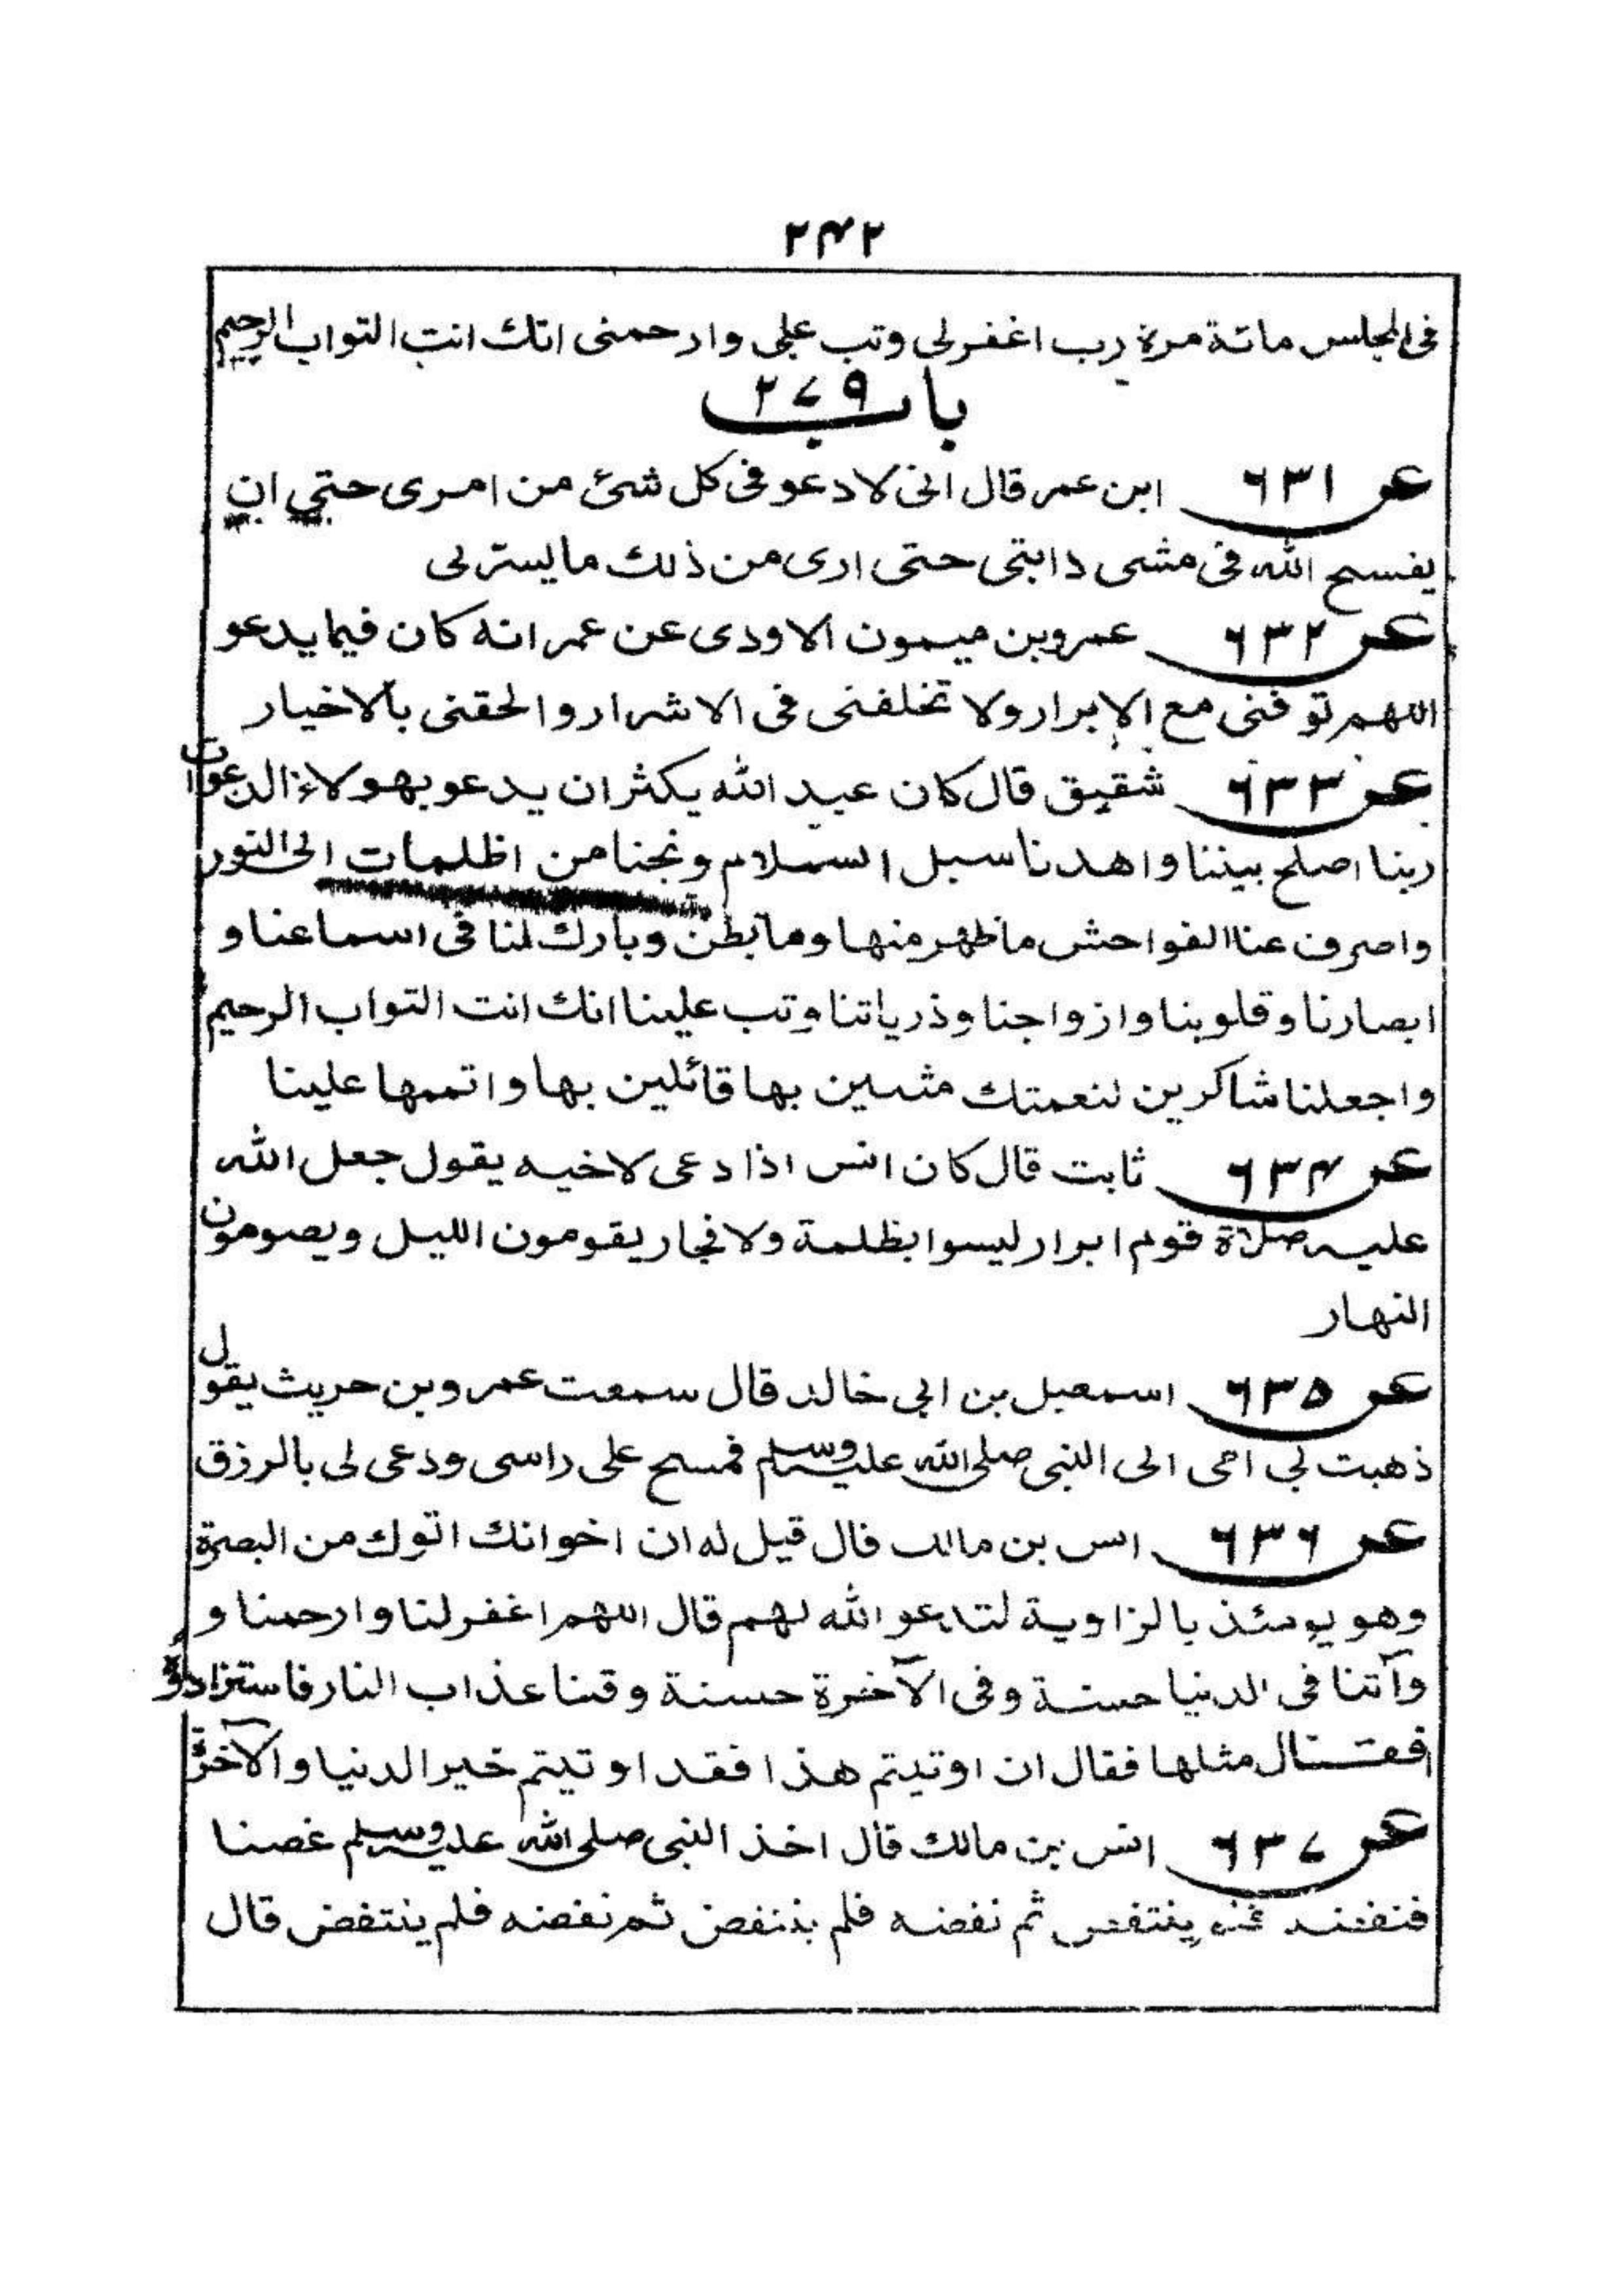 ۲۴۲
فى المجلس مائة مرة رب اغفرلى وتب على وارحمنى انك انت التواب الرحيم
باب ۲۷۹
عن ۶۳۱ ابن عمر قال انى لادعو فى كل شئ من امرى حتى ان
يفسح الله فى مشى دابتى حتى ارى من ذلك ما يسرنى
عن ۶۳۲ عمرو بن ميمون الاودى عن عمر انه كان فيما يدعو
اللهم توفنى مع الابرار ولا تخلفنى فى الاشرار والحقنى بالاخيار
عن ۶۳۳ شقيق قال كان عبد الله يكثر ان يدعو بهولاء الدعوات
ربنا اصلح بيننا واهدنا سبل السلام ونجنا من اظلمات الى النور
واصرف عنا الفواحش ما ظهر منها وما بطن وبارك لنا فى اسماعنا و
ابصارنا وقلوبنا وازواجنا وذرياتنا وتب علينا انك انت التواب الرحيم
واجعلنا شاكرين لنعمتك مثنين بها قائلين بها واتممها علينا
عن ۶۳۴ ثابت قال كان انس اذا دعى لاخيه يقول جعل الله
عليه صلاة قوم ابرار ليسوا بظلمة ولا فجار يقومون الليل ويصومون
النهار
عن ۶۳۵ اسمعيل بن ابى خالد قال سمعت عمرو بن حريث يقول
ذهبت بى امى الى النبى صلى الله عليه وسلم فمسح على راسى ودعى لى بالرزق
عن ۶۳۶ انس بن مالك قال قيل له ان اخوانك اتوك من البصرة
وهو يومئذ بالزاوية لتدعو الله لهم قال اللهم اغفر لنا وارحمنا و
وآتنا فى الدنيا حسنة وفى الآخرة حسنة وقنا عذاب النار فاستزادوه
فقال مثلها فقال ان اوتيتم هذا فقد اوتيتم خير الدنيا والآخرة
عن ۶۳۷ انس بن مالك قال اخذ النبى صلى الله عليه وسلم غصنا
فنفضه فلم ينتفض ثم نفضه فلم ينتفض ثم نفضه فلم ينتفض قال